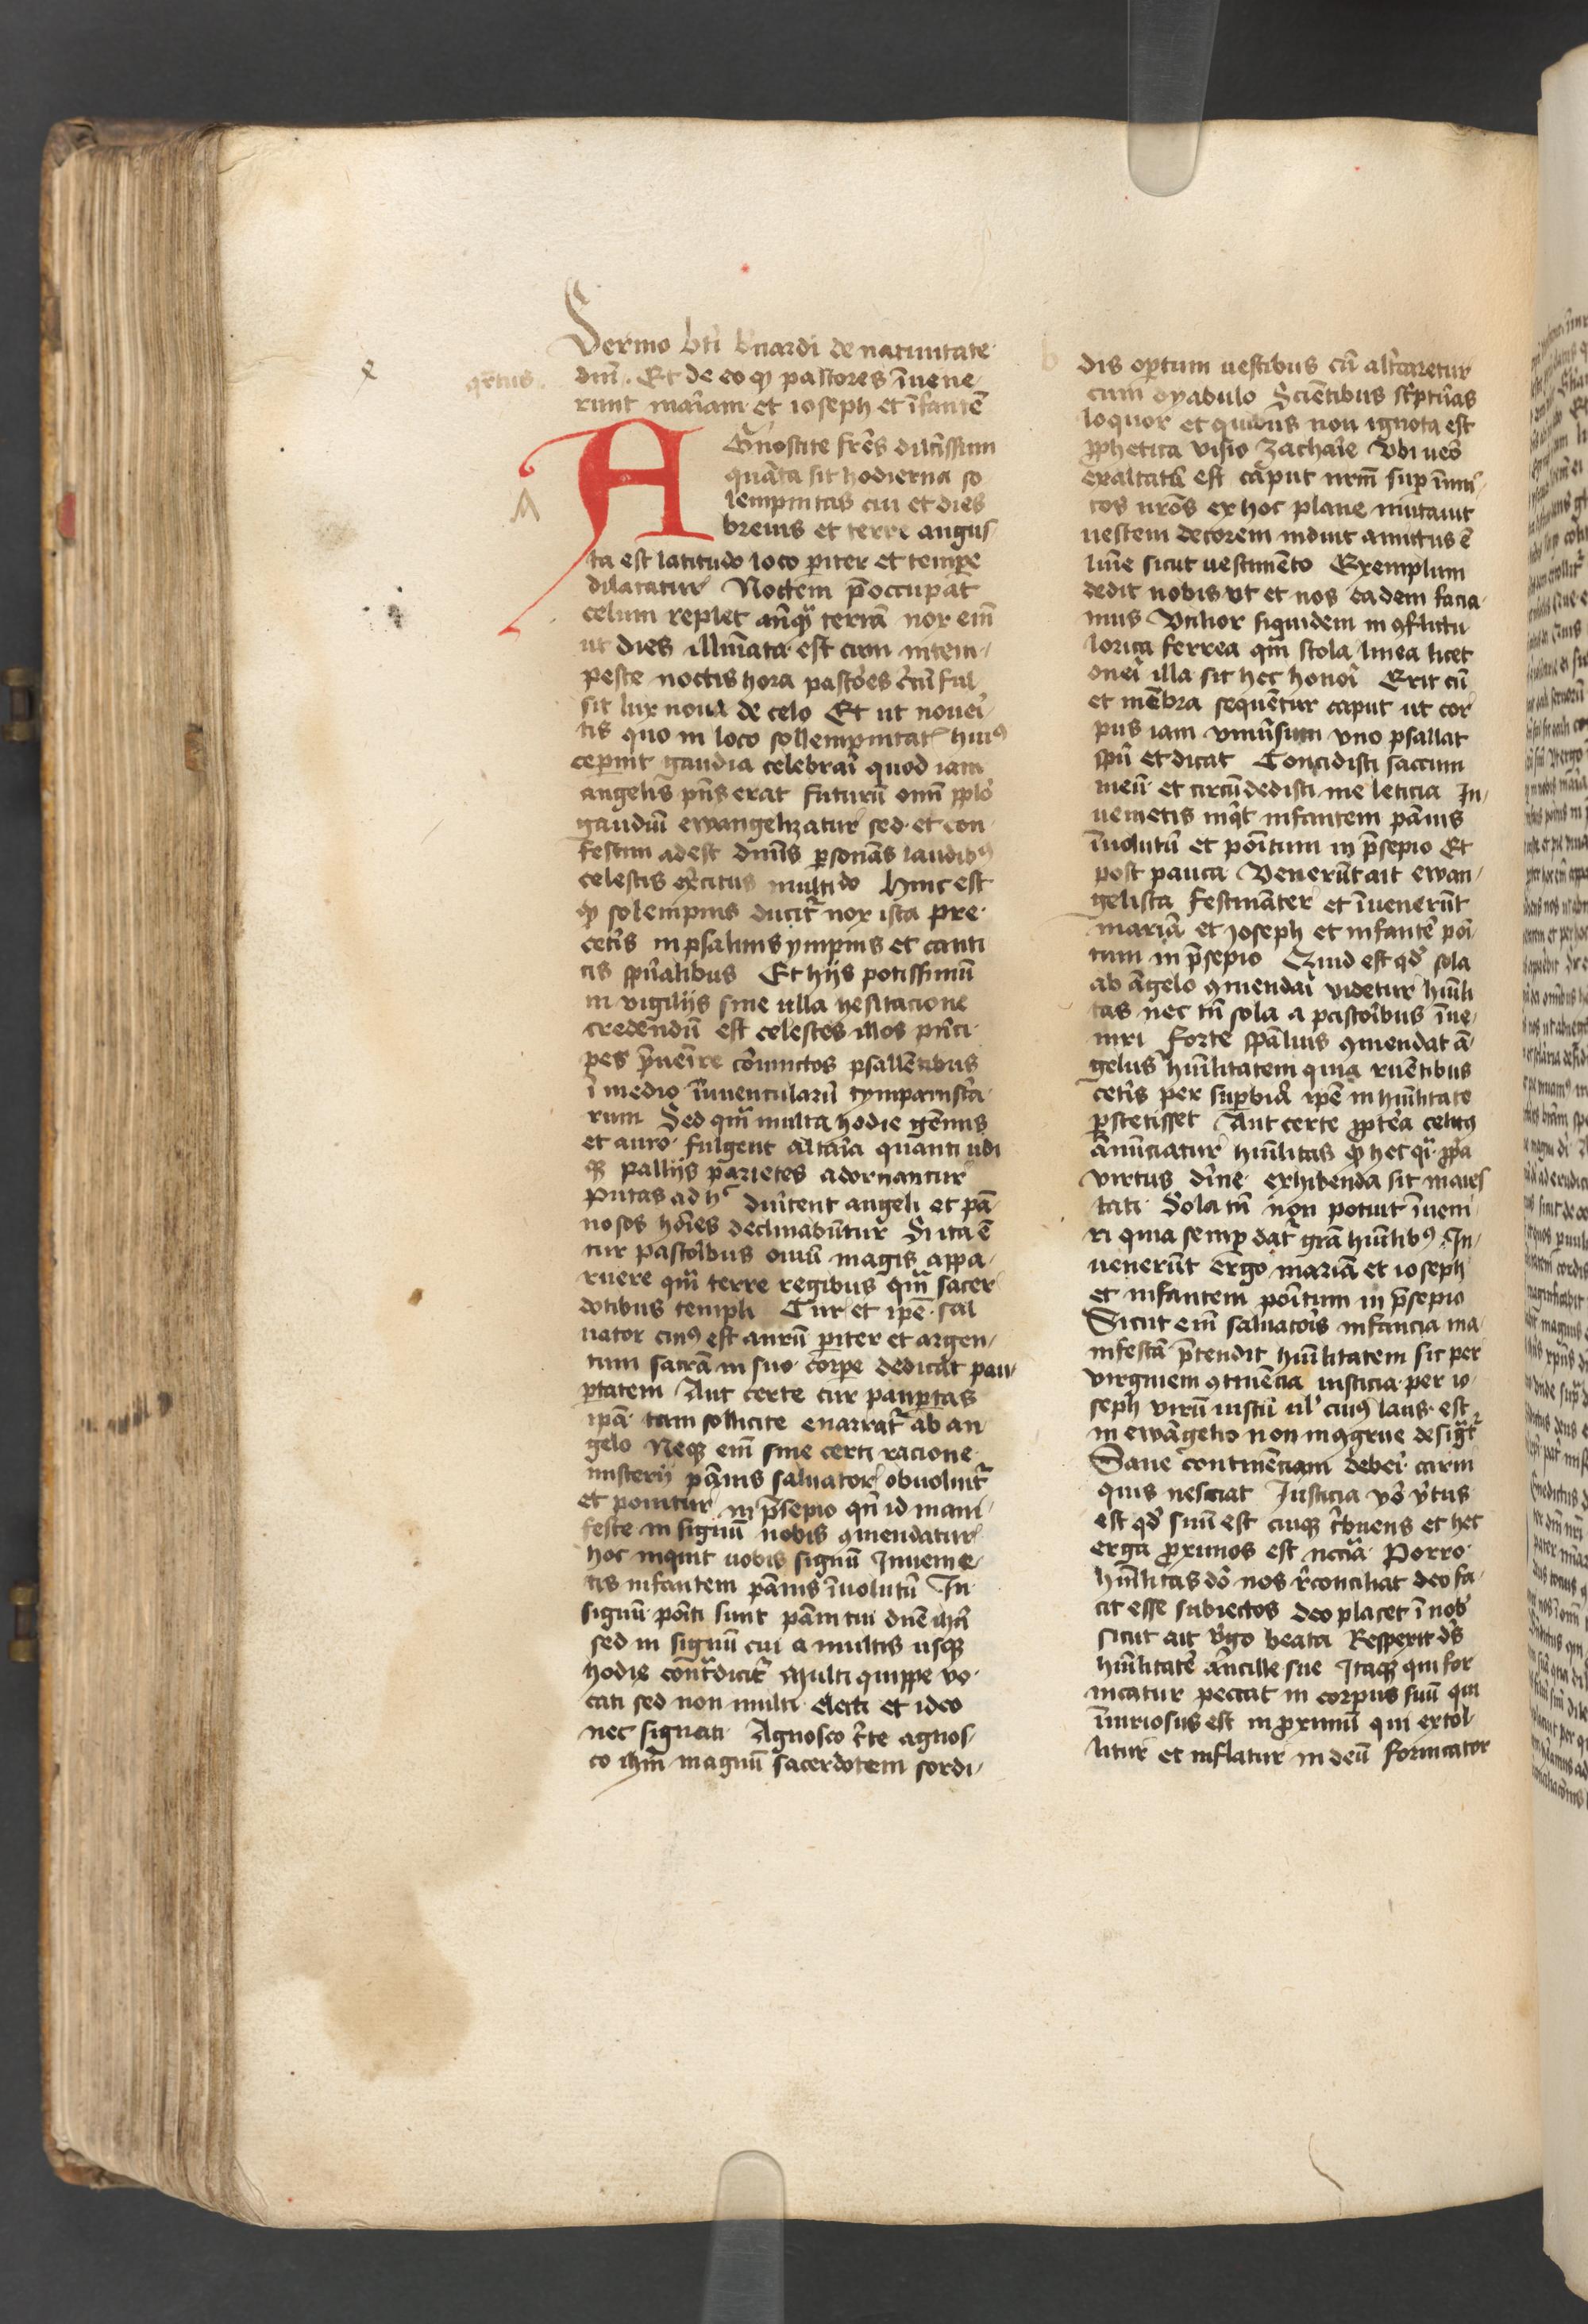 Sermo bti bnardi de natiuitate
qrtus.
dni. Et de eo qp pastores īuene
runt mariam et ioseph et īfantē
A
AGnoscite frēs dilcissimi
quāta sit hodierna so
lempnitas cui et dies
breuis et terre angus
ta est latitudo loco piter et tempe
dilatatur Noctem p̄occupat
celum replet anq̄ȝ terrā nox eīn
ut dies illuīata est cum intem
peste noctis hora pastores cīcūful
sit lux noua de celo Et ut noueī
tis quo in loco sollempnitat huiꝰ
ceperint gaudia celebrari quod iam
angelis pn̄s erat futurū omī pplo
gaudiū ewangelizatur sed et con
festim adest diuīs psonās laudibꝰ
celestis exc̄itus multido hinc est
qp solempnis ducitr nox ista pre
cet̄is in psalmis ympnis et canti
cis spūalibus Et hijs potissimū
in vigilijs sine ulla hesitacione
credendū est celestes illos pn̄ci
pes p̄ueīre cōiunctos psallētibus
ī medio iuuencularū tympanist̄a
rum Sed qm̄ multa hodie gēmis
et auro fulgent altaria quanti ubi
qȝ pallijs parietes adornantur
putas ad hͨ diūtent angeli et pā
nosos hōies declinabūtur Si ita ē
cur pastoribus ouiū magis appa
ruere qm̄ terre regibus qm̄ sacer
dotibus templi Cur et ipē sal
uator cuiꝰ est aurū piter et argen
tum sacrā in suo corpe dedicat pau
ptatem Aut certe cur pauptas
ipā tam sollicite enarratr ab an
gelo Neqȝ eīn sine certi racione
misterij pānis saluator obuoluitr
et ponitur in p̄sepio qn̄ id mani
feste in signū nobis ꝯmendatur
hoc inquit uobis signū Inuenie
tis infantem pānis īuolutū In
signū poīti sunt pāni tui dnē ihū
sed in signū cui a multis usqȝ
hodie contr̄dicitr Multi quippe vo
cati sed non multi electi et ideo
nec signati Agnosco c̄te agnos
co ihm̄ magnū sacerdotem sordi
b
dis optum uestibus cū alt̄caretur
cum dyabulo Scientibus sc̄ptūas
loquor et quibus non ignota est
pphetica visio Zacharie Vbi ueō
exaltatū est caput nrm̄ sup īimi
cos nrōs ex hoc plane mutauit
uestem decorem induit amictus ē
lumē sicut uestimēto Exemplum
dedit nobis ut et nos eadem facia
mus Vtilior siquidem in ꝯflictu
lorica ferrea qm̄ stola linea licet
onei illa sit hec honoī Erit cū
et mēbra sequētur caput ut cor
pus iam vniūsum vno psallat
spū et dicat Concidisti saccum
meū et circūdedisti me leticia In
uenietis inqt infantem pānis
īuolutū et poītum in p̄sepio Et
post pauca Venerūt ait ewan
gelista festināter et īuenerūt
mariā et Joseph et infantē poī
tum in p̄sepio Quid est qd sola
ab āngelo ꝯmendari videtur hūili
tas nec tn̄ sola a pastoībus īue
niri Forte spāliuis ꝯmendat ā
gelus hūilitatem quia ruētibus
cet̄is per supbiā ipē in hūilitate
pstetisset Aut certe ppt̄ea celitꝰ
anūciatur hūilitas qp hec qi ppa
virtus dīne exhibenda sit maies
tati Sola tn̄ non potuit īueni
ri quia semp datr grā hūilibꝰ In
uenerūt ergo mariā et ioseph
et infantem poītum in p̄sepio
Sicut eīn saluatoīs infancia ma
nifestā p̄tendit hūilitatem sic per
virginem ꝯtinēcia iusticia per io
seph virū iustū ul cuiꝰ laus est
in ewāgelio non inꝯgrue desigtr
Sane continēciam deberi carni
quis nesciat Justicia vō v̄tus
est qd suū est cuiqȝ t̄buens et hec
erga proximos est nccia Porro
hūilitas dō nos rconciliat deo fa
cit esse subiectos deo placet ī nob
sicut ait v̄go beata Respexit ds
hūilitatē ancille sue Itaqȝ qui for
nicatur peccat in corpus suū qui
īiuriosus est in proximū qui extol
litur et inflatur in deū fornicator